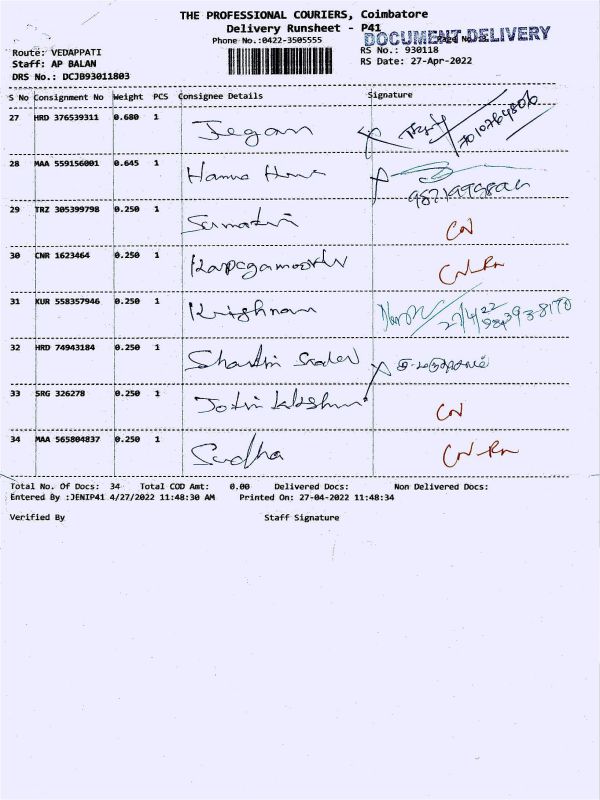 THE PROFESSIONAL COURIERS, Coimbatore
Delivery Runsheet - P41
DOCUMENT DELIVERY
Phone No.:0422-3505555
Route: VEDAPPATI
RS No.: 930118
Staff: AP BALAN
RS Date: 27-Apr-2022
DRS No.: DCJB93011803
S No Consignment No Weight PCS Consignee Details Signature
27 HRD 376539311 0.680 1 Jegan
28 MAA 559156001 0.645 1
29 TRZ 305399798 0.250 1
30 CNR 1623464 0.250 1 Karpagamoorthi
31 KUR 558357946 0.250 1 Krishnan 27/4/22
32 HRD 74943184 0.250 1
33 SRG 326278 0.250 1
34 MAA 565804837 0.250 1 Sudha
Total No. Of Docs: 34 Total COD Amt: 0.00 Delivered Docs: Non Delivered Docs:
Entered By :JENIP41 4/27/2022 11:48:30 AM Printed On: 27-04-2022 11:48:34
Verified By Staff Signature